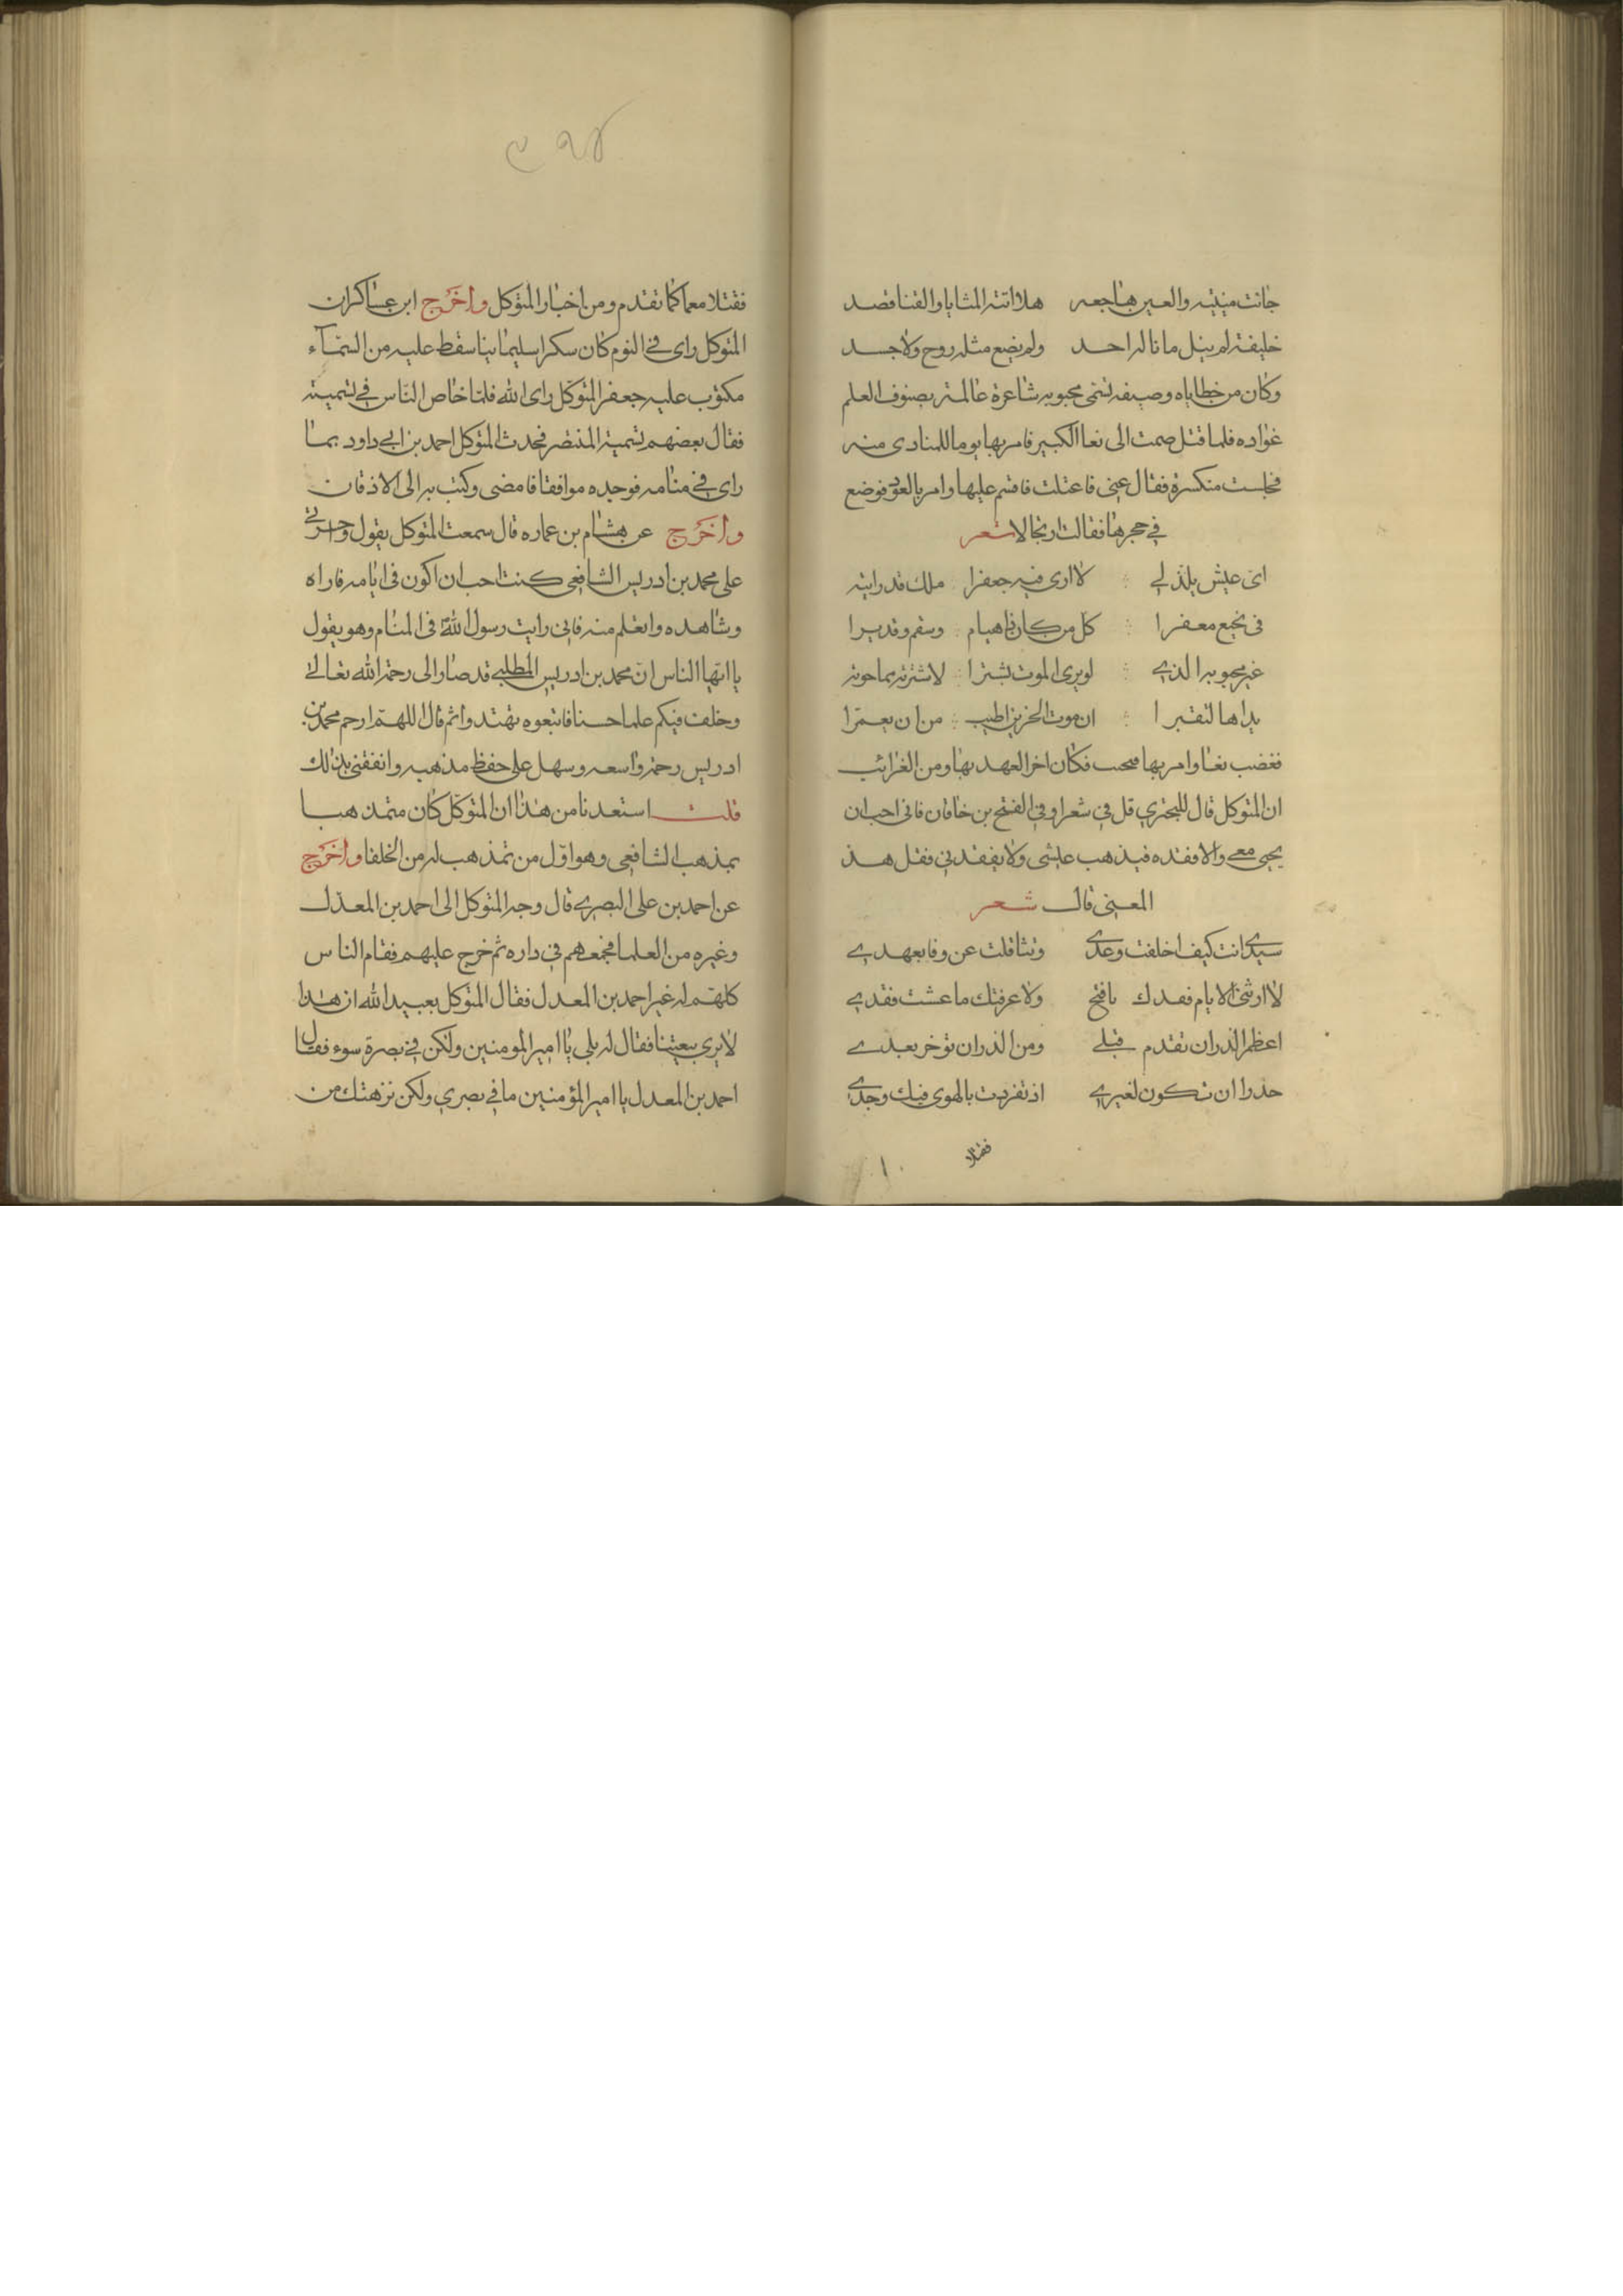 جانت منيته والعين هاجعه هلا اتته المنايا والقنا قصد
خليفة لم ينل ما ناله احد ولم يضع مثله روح ولا جسد
وكان من خطاياه وصيفه تسمى محبوبه شاعرة عالمة بصنوف العلم
عواده فلما قتل صمت الى بغا الكبير فامر بها يوما للمنادى منه
فجلست منكسرة فقال غني فاعتلت فاقسم عليها وامر بالعود فوضع
في حجرها فقالت ارتجالا شعر
اي عيش يلذ لي لا ارى فيه جعفرا ملك قد رايته
في نجيع معفرا كل من كان ذا هيام وسقم وقد برا
غير محبوبه الذي لو يرى الموت يشترا لاشترته بما حوته
يداها لتقبرا ان موت الحزين اطيب من ان يعمرا
فغضب بغا وامر بها فسجت فكان اخر العهد بها ومن الغرائب
ان المتوكل قال للبحتري قل في شعرا وفي الفتح بن خاقان فاني احب ان
يحيى معي ولا افقده فيذهب عيشي ولا يفقدني فقل هذ
المعنى قال شعر
سيدي انت كيف اخلفت وعدي وتثاقلت عن وفا بعهدي
لا ارتني الايام فقدك يا فتح ولا عرفتك ما عشت فقدي
اعظم الذر ان تقدم قبلي ومن الذر ان توخر بعدي
حذرا ان تكون لغيري اذ تفردت بالهوى فيك وجدي
فقتلا
فقتلا معا كما تقدم ومن اخبار المتوكل واخرج ابن عساكر ان
المتوكل راى في النوم كان سكرا سليمانيا سقط عليه من السمآء
مكتوب عليه جعفر المتوكل راى الله فلما خاص الناس في تسميته
فقال بعضهم تسميه المنتصر فحدث المتوكل احمد بن ابي داود بما
راى في منامه فوجده موافقا فامضى وكتب به الى الافاق
واخرج عن هشام بن عماره قال سمعت المتوكل يقول واحسرتي
على محمد بن ادريس الشافعي كنت احب ان اكون في ايامه فاراه
وشاهده واتعلم منه فاني رايت رسول الله في المنام وهو يقول
يا ايها الناس ان محمد بن ادريس المطلبي قد صار الى رحمة الله تعالى
وخلف فيكم علما حسنا فاتبعوه تهتدوا ثم قال اللهم ارحم محمد بن
ادريس رحمة واسعه وسهل على حفظ مذهبه وانفعني بذلك
قلت استعدنا من هذا ان المتوكل كان متمذهبا
بمذهب الشافعي وهو اول من تمذهب له من الخلفا واخرج
عن احمد بن علي البصري قال وجه المتوكل الى احمد بن المعذل
وغيره من العلما فجمعهم في داره ثم خرج عليهم فقام الناس
كلهم له غير احمد بن المعدل فقال المتوكل لعبيد الله ان هذا
لا يرى بيعتنا فقال له بلى يا امير المومنين ولكن في بصرة سوء فقال
احمد بن المعدل يا امير المؤمنين ما في بصري ولكن نزهتك من